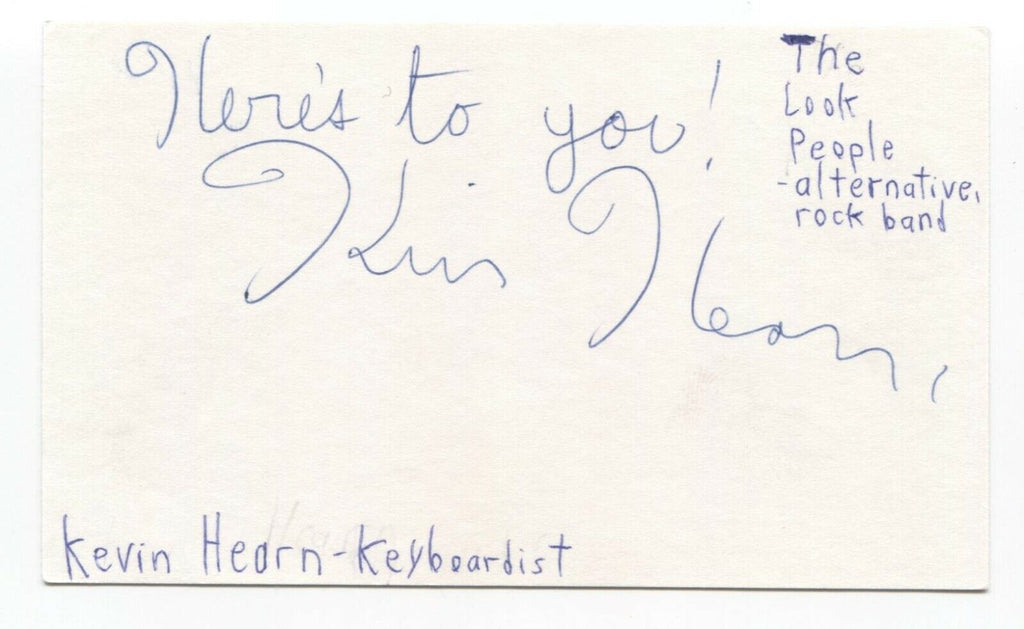 Here's to you!
Kevin Hearn,
The
Look
People
-alternative,
rock band
Kevin Hearn-Keyboardist